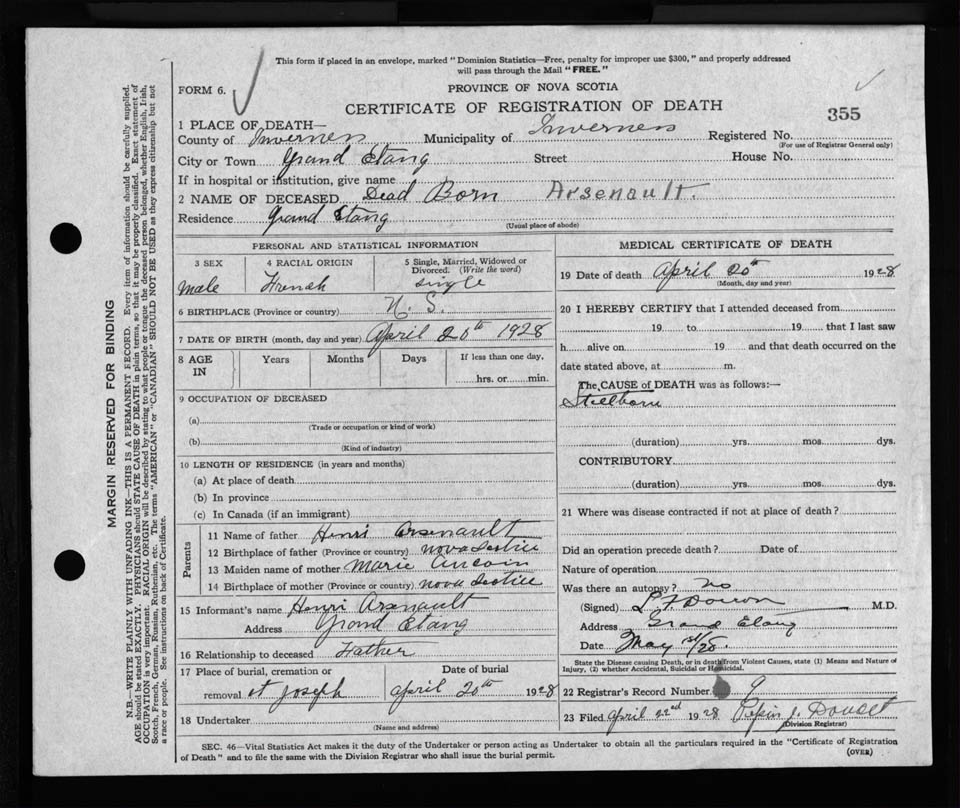 This form if placed in an envelope, marked "Dominion Statistics—Free, penalty for improper use $300," and properly addressed
will pass through the Mail "FREE."
FORM 6.
PROVINCE OF NOVA SCOTIA
CERTIFICATE OF REGISTRATION OF DEATH
355
1 PLACE OF DEATH—
County of Inverness Municipality of Inverness Registered No.
(For use of Registrar General only)
City or Town Grand Etang Street House No.
If in hospital or institution, give name
2 NAME OF DECEASED Dead Born Arsenault.
Residence Grand Etang
(Usual place of abode)
PERSONAL AND STATISTICAL INFORMATION
3 SEX 4 RACIAL ORIGIN 5 Single, Married, Widowed or
Divorced. (Write the word)
male French single
6 BIRTHPLACE (Province or country) N. S.
7 DATE OF BIRTH (month, day and year) April 20th 1928
8 AGE IN Years Months Days If less than one day,
hrs. or min.
9 OCCUPATION OF DECEASED
(a)
(Trade or occupation or kind of work)
(b)
(Kind of industry)
10 LENGTH OF RESIDENCE (in years and months)
(a) At place of death
(b) In province
(c) In Canada (if an immigrant)
Parents
11 Name of father Henri Arsenault
12 Birthplace of father (Province or country) Nova Scotia
13 Maiden name of mother Marie Aucoin
14 Birthplace of mother (Province or country) Nova Scotia
15 Informant's name Henri Arsenault
Address Grand Etang
16 Relationship to deceased Father
17 Place of burial, cremation or Date of burial
removal St Joseph April 20th 1928
18 Undertaker
(Name and address)
MEDICAL CERTIFICATE OF DEATH
19 Date of death April 20th 1928
(Month, day and year)
20 I HEREBY CERTIFY that I attended deceased from
19 to 19 that I last saw
h alive on 19 and that death occurred on the
date stated above, at m.
The CAUSE of DEATH was as follows:—
Stillborn
(duration) yrs. mos. dys.
CONTRIBUTORY
(duration) yrs. mos. dys.
21 Where was disease contracted if not at place of death?
Did an operation precede death? Date of
Nature of operation
Was there an autopsy? no
(Signed) M.D.
Address Grand Etang
Date May 1st/28.
State the Disease causing Death, or in death from Violent Causes, state (1) Means and Nature of
Injury, (2) whether Accidental, Suicidal or Homicidal.
22 Registrar's Record Number 9
23 Filed April 22nd 1928 J. Doucet
(Division Registrar)
SEC. 46—Vital Statistics Act makes it the duty of the Undertaker or person acting as Undertaker to obtain all the particulars required in the "Certificate of Registration
of Death" and to file the same with the Division Registrar who shall issue the burial permit.
(OVER)
MARGIN RESERVED FOR BINDING
N.B.—WRITE PLAINLY WITH UNFADING INK—THIS IS A PERMANENT RECORD. Every item of information should be carefully supplied.
AGE should be stated EXACTLY. PHYSICIANS should STATE CAUSE OF DEATH in plain terms, so that it may be properly classified. Exact statement of
OCCUPATION is very important. RACIAL ORIGIN will be described by stating to what people or tongue the deceased person belonged, whether English, Irish,
Scotch, French, German, Russian, Ruthenian, etc. The terms "AMERICAN" or "CANADIAN" SHOULD NOT BE USED as they express citizenship but not
a race or people. See instructions on back of Certificate.